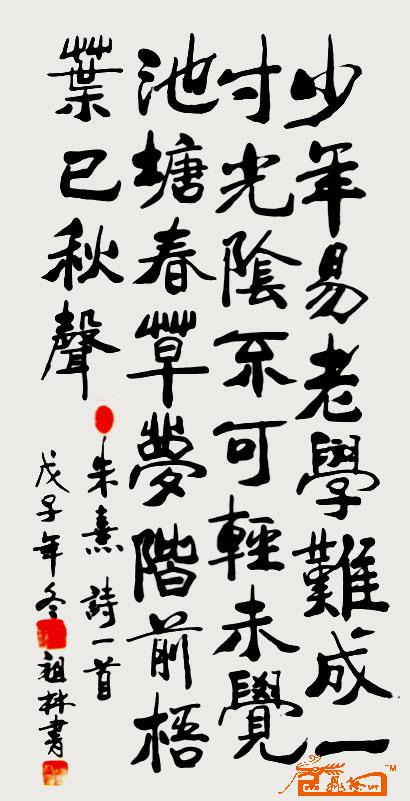 少年易老學難成一
寸光陰不可輕未覺
池塘春草夢階前梧
葉已秋聲
朱熹詩一首
戊子年冬祖林書